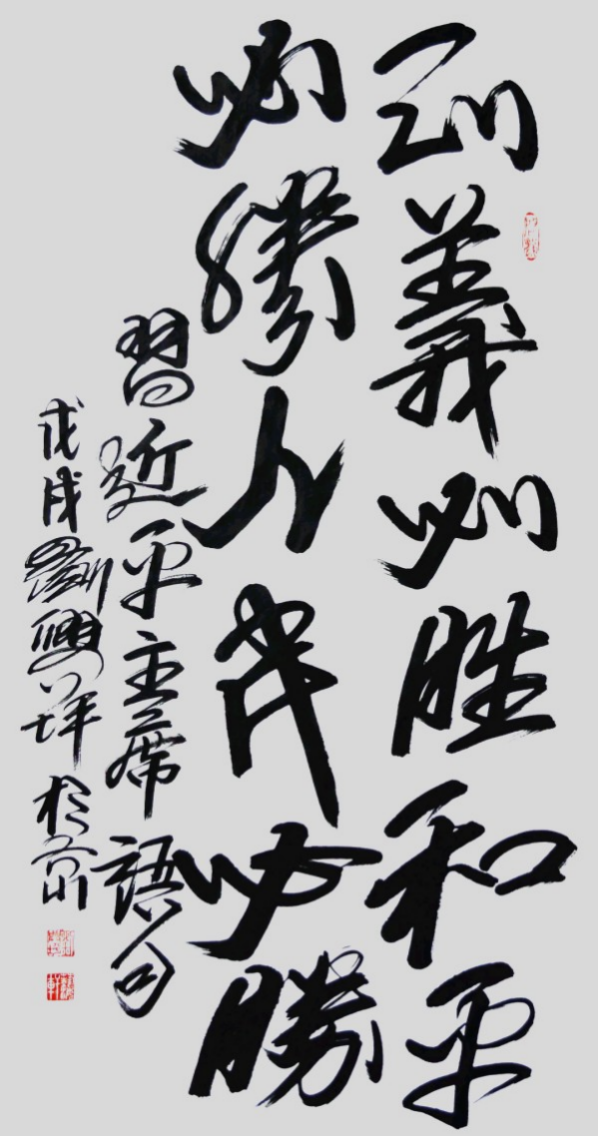 正義必胜和平
必勝人民必勝
習近平主席語句
戊戌劉興祥於京